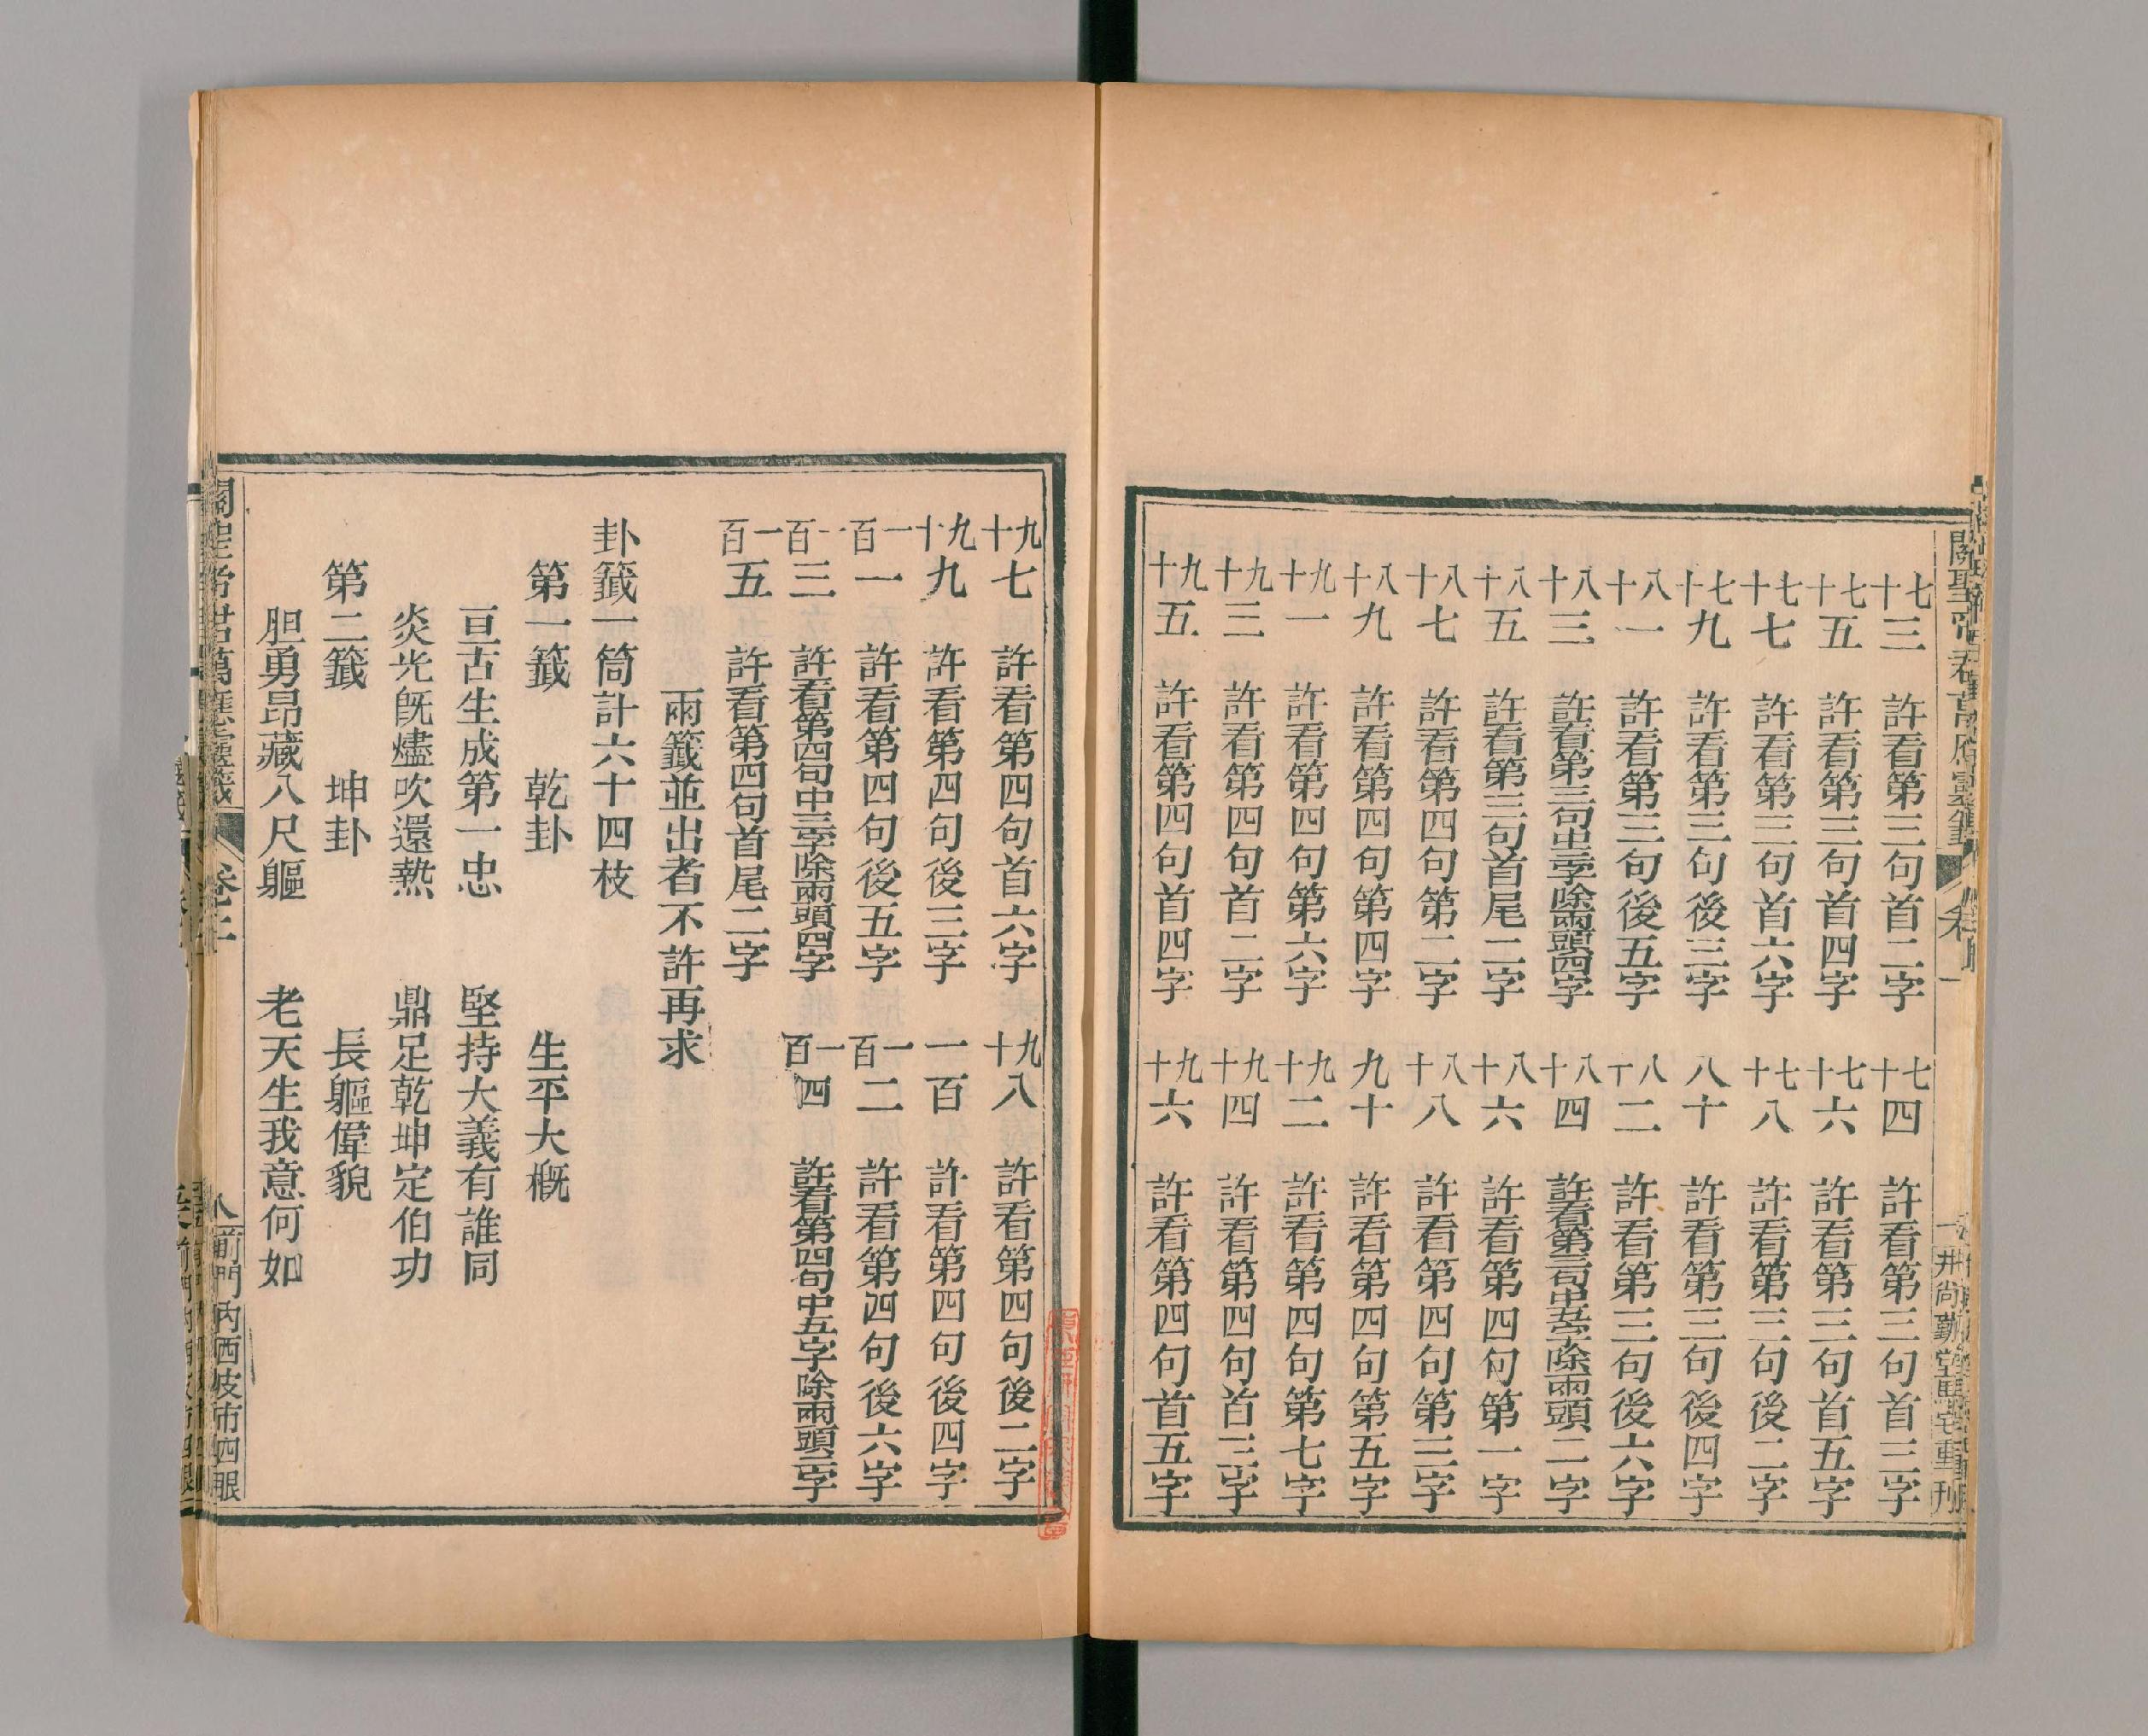 七十三 許看第三句首二字 七十四 許看第三句首三字
七十五 許看第三句首四字 七十六 許看第三句首五字
七十七 許看第三句首六字 七十八 許看第三句後二字
七十九 許看第三句後三字 八十 許看第三句後四字
八十一 許看第三句後五字 八十二 許看第三句後六字
八十三 許看第三句中三字除兩頭四字 八十四 許看第三句中五字除兩頭二字
八十五 許看第三句首尾二字 八十六 許看第四句第一字
八十七 許看第四句第二字 八十八 許看第四句第三字
八十九 許看第四句第四字 九十 許看第四句第五字
九十一 許看第四句第六字 九十二 許看第四句第七字
九十三 許看第四句首二字 九十四 許看第四句首三字
九十五 許看第四句首四字 九十六 許看第四句首五字
九十七 許看第四句首六字 九十八 許看第四句後二字
九十九 許看第四句後三字 一百 許看第四句後四字
一百一 許看第四句後五字 一百二 許看第四句後六字
一百三 許看第四句中三字除兩頭四字 一百四 許看第四句中五字除兩頭二字
一百五 許看第四句首尾二字
兩籤並出者不許再求
卦籤一筒計六十四枝
第一籤 乾卦 生平大概
亘古生成第一忠 堅持大義有誰同
炎光旣燼吹還熱 鼎足乾坤定伯功
第二籤 坤卦 長軀偉貌
胆勇昂藏八尺軀 老天生我意何如
關聖帝君萬應靈籤 卷二 八 前門內西皮市四眼